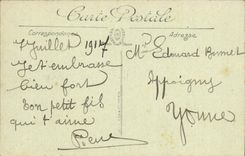 Carte Postale
Correspondance
Adresse
Juillet 1917
Je t'embrasse
bien fort
ton petit fils
qui t'aime
René
Mr Edouard
Appoigny
Yonne